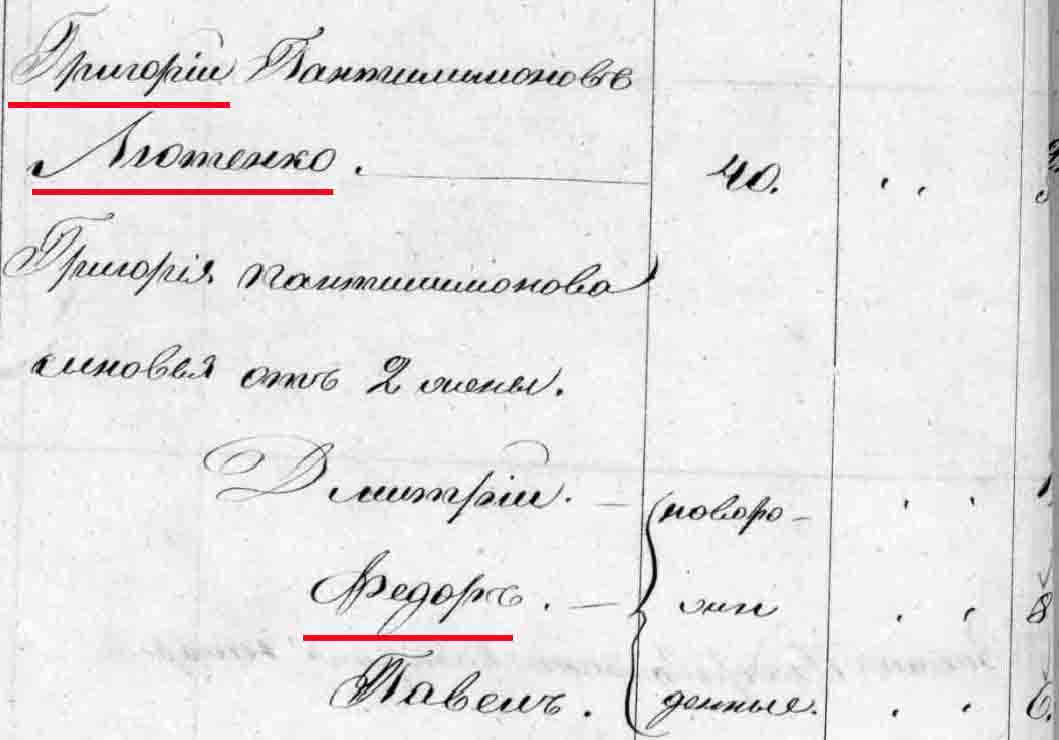 Григорій Пантилимоновъ
Лютенко. 40.
Григорія Пантилимонова
синовья отъ 2 жены.
Дмитрій. — новоро-
Федоръ. — жи
Павелъ. денные.
8
6.